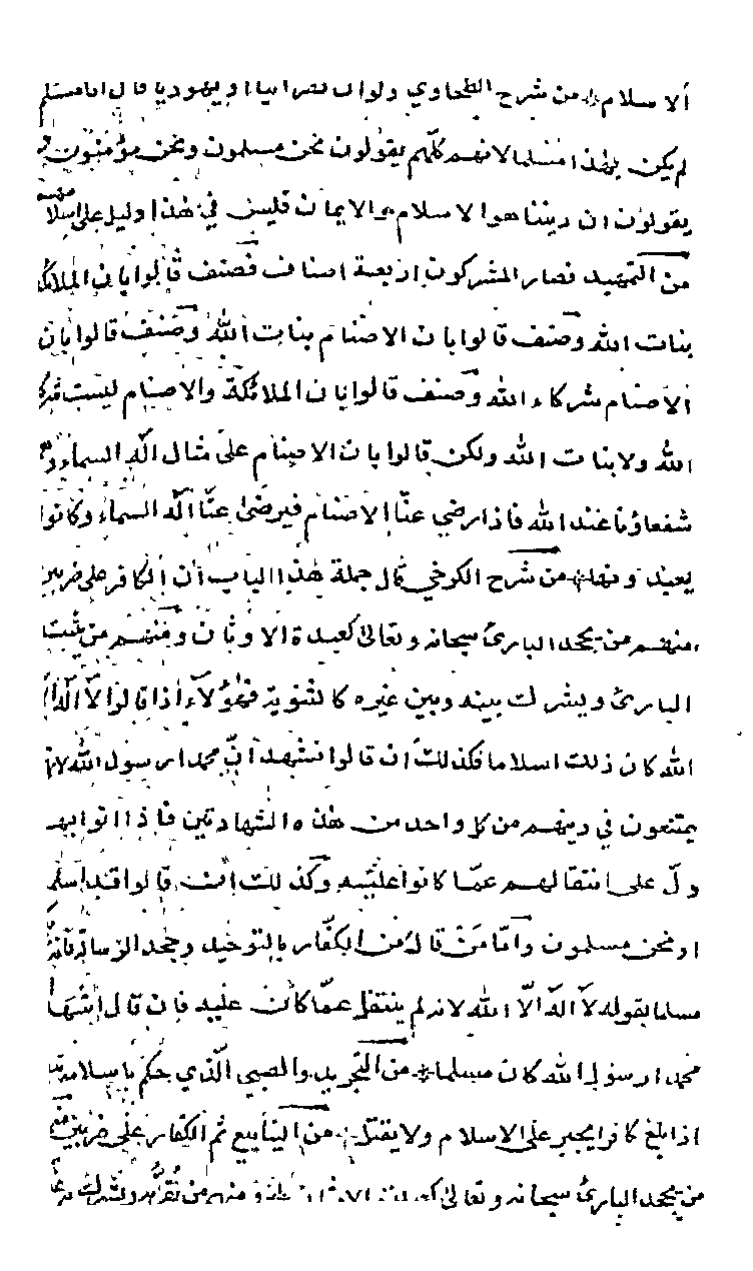 الاسلام من شرح الطحاوي ولو ان نصرانيا او يهوديا قال انا مسلم
لم يكن بهذا مسلما لانهم كلهم يقولون نحن مسلمون ونحن مؤمنون
يقولون ان ديننا هو الاسلام والايمان فليس في هذا دليل على اسلامهم
من التمهيد فصار المشركون اربعة اصناف فصنف قالوا بان الملائكة
بنات الله وصنف قالوا بان الاصنام بنات الله وصنف قالوا بان
الاصنام شركاء الله وصنف قالوا بان الملائكة والاصنام ليست شركاء
الله ولا بنات الله ولكن قالوا بان الاصنام على مثال اله السماء
شفعاؤنا عند الله فاذا رضي عنا الاصنام فيرضى عنا اله السماء وكانوا
يعبدونها من شرح الكرخي قال جملة هذا الباب ان الكافر على ضربين
منهم من يجحد البارئ سبحانه وتعالى كعبدة الاوثان ومنهم من يثبت
البارئ ويشرك بينه وبين غيره كالثنوية فهؤلاء اذا قالوا لا اله الا
الله كان ذلك اسلاما فكذلك ان قالوا نشهد ان محمدا رسول الله لانهم
يمتنعون في دينهم من كل واحد من هذه الشهادتين فاذا اتوا بها
دل على انتقالهم عما كانوا عليه وكذلك ان قالوا قد اسلمنا
او نحن مسلمون واما من قال من الكفار بالتوحيد وجحد الرسالة
مسلما بقوله لا اله الا الله لانه لم ينتقل عما كان عليه فان قال اشهد
محمدا رسول الله كان مسلما من التجريد والصبي الذي حكم باسلامه
اذا بلغ كافرا يجبر على الاسلام ولا يقتل من الينابيع ثم الكفار على ضربين منهم
من يجحد البارئ سبحانه وتعالى كعبدة الاوثان ومنهم من يقر به ويشرك